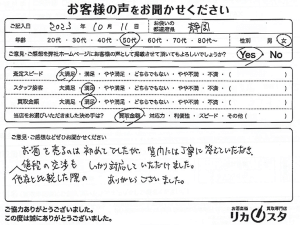 お客様の声をお聞かせください
ご記入日 2023 年 10 月 11 日 お使いの都道府県 静岡
年齢 20代 ・ 30代 ・ 40代 ・ 50代 ・ 60代 ・ 70代 ・ 80代〜 性別 男 ・ 女
ご意見・ご感想を弊社ホームページにお客様の声として掲載させて頂いてもよろしいでしょうか? Yes ・ No
査定スピード 大満足 ・ 満足 ・ やや満足 ・ どちらでもない ・ やや不満 ・ 不満 ( )
スタッフ接客 大満足 ・ 満足 ・ やや満足 ・ どちらでもない ・ やや不満 ・ 不満 ( )
買取金額 大満足 ・ 満足 ・ やや満足 ・ どちらでもない ・ やや不満 ・ 不満 ( )
当店をお選びいただきました決め手は? 買取金額 ・ 対応力 ・ 利便性 ・ スピード ・ その他 ( )
ご意見・ご感想などぜひお聞かせください
お酒を売るのは初めてでしたが、質問には丁寧に答えていただき、
値段の交渉も しっかり対応していただけました。
他店と比較した際の ありがとうございました。
ご協力ありがとうございました。
この度は誠にありがとうございました。
お酒楽器 買取専門店
リカスタ